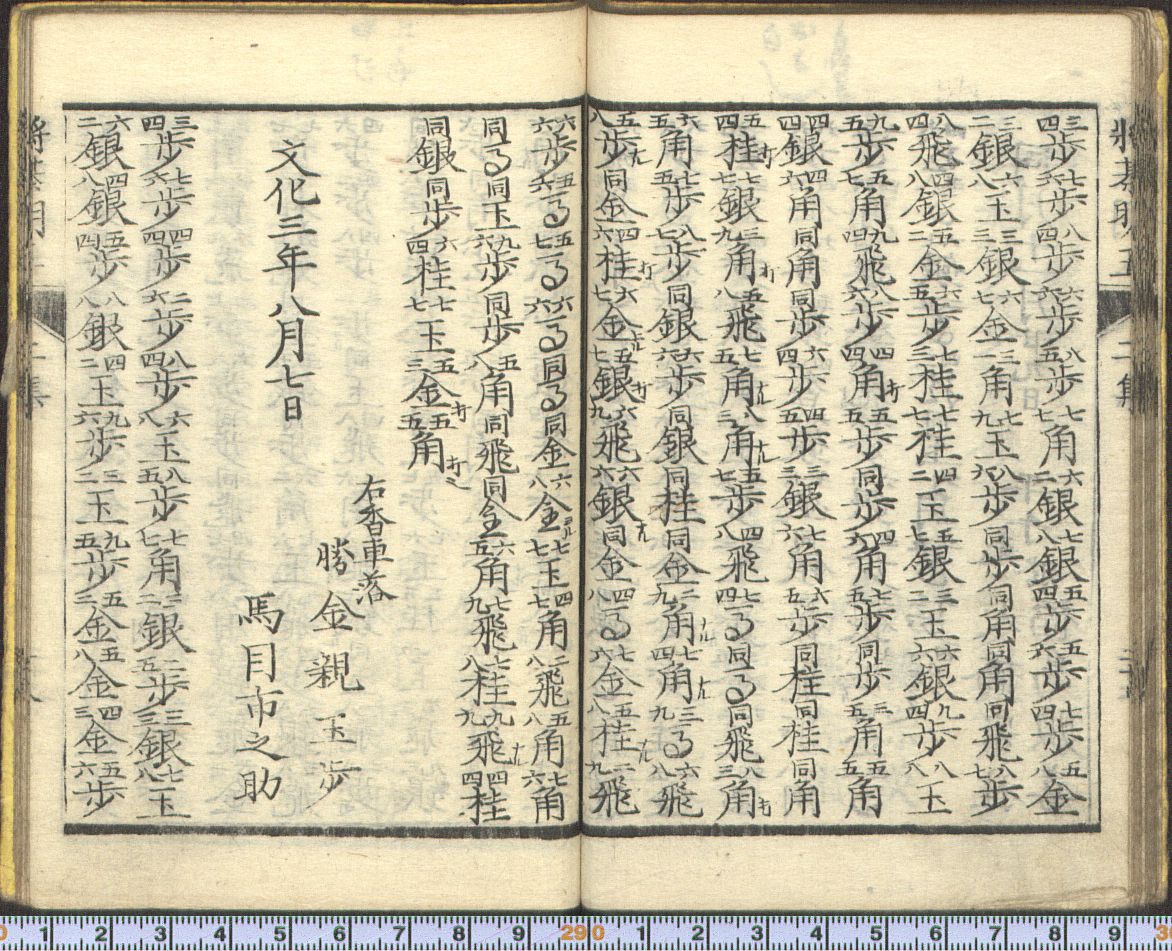 三四歩七六歩八四歩六六歩八五歩七七角六二銀七八銀五四歩五六歩七四歩五八金
三二銀六八玉三三銀六七金三一角七九玉八六歩同歩同角同角同飛八七歩
八四飛四八銀三二金六五歩七三桂七七桂四二玉五七銀三二玉六六銀九四歩八八玉
九五歩五七角九四飛八六歩四四角打五五歩同歩四六角七五歩同歩三五角五五角
四四銀四六角同角同歩六四歩四五歩三三銀七六歩六五歩同桂同桂同角
五四桂打七七銀三九角打五八飛七五角ナル八三角ナル五七歩四八飛七四馬同馬同飛八三角打
六五角七五歩八七歩同銀六六歩同銀同桂同金二九角ナル七四角ナル三九馬六八飛
五八歩ナル同金四六桂打六七金ヨル五七銀打六九飛六六銀ナル同金四八馬七六金五八桂ナル二九飛
六六歩五六馬五七馬六六馬同馬同金六八金ヨル七七玉四七角二八飛五八角七六角
同馬同玉九六歩同歩五八角同飛同金六五角七九飛七八桂九九飛ナル四四桂
同銀同歩六四桂七七玉五三金打五五角打
右香車落
勝 金親玉歩
文化三年八月七日
馬目市之助
三四歩七六歩四四歩二六歩八四歩六八玉八五歩七七角二二銀二五歩三三銀七八玉
六二銀四八銀五四歩八八銀四二玉九六歩三二玉九五歩五二金五八金四三金五六歩